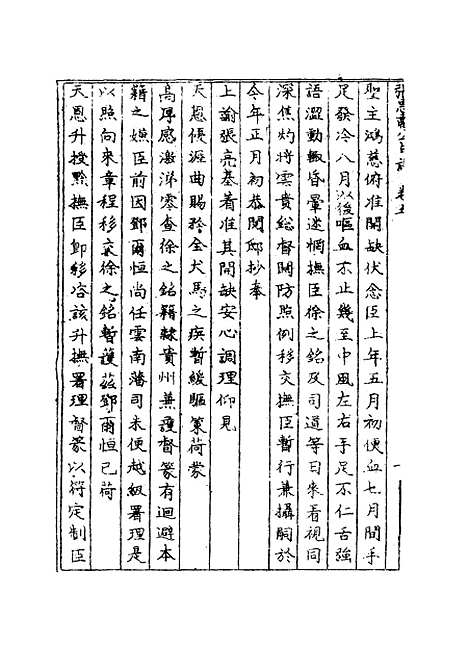 張惠肅公年譜 卷五 一
聖主鴻慈俯准開缺伏念臣上年五月初便血七月間手
足發冷八月以後嘔血不止幾至中風左右手足不仁舌強
語澀動輒昏暈迷惘撫臣徐之銘及司道等日來看視同
深焦灼將雲貴總督關防照例移交撫臣暫行兼攝嗣於
今年正月初恭閱邸抄奉
上諭張亮基着准其開缺安心調理仰見
天恩優渥曲賜矜全犬馬之疾暫緩驅策荷蒙
高厚感激涕零查徐之銘籍隸貴州兼護督篆有迴避本
籍之嫌臣前因鄧爾恒尚任雲南藩司未便越級署理是
以照向來章程移交徐之銘暫護茲鄧爾恒已荷
天恩升授黔撫臣卽移咨該升撫署理督篆以符定制臣